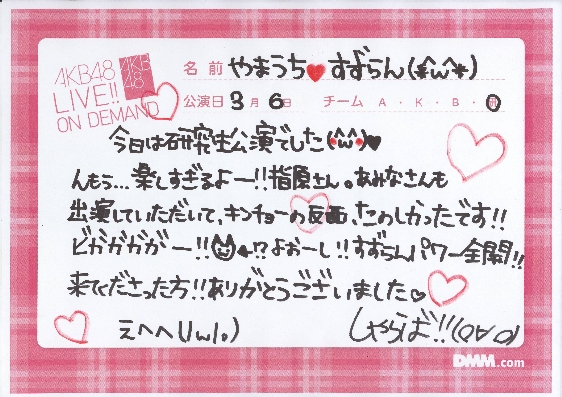 AKB48
LIVE!!
ON DEMAND
AKB
48
名前 やまうち♥すずらん(*^ω^*)
公演日 3月6日 チーム A・K・B・研
今日は研究生公演でした(*^ω^*)♥
んもぅ…楽しすぎるよー!!指原さん。あみなさんも
出演していただいて、キンチョーの反面、たのしかったです!!
ビがガガガー!!!?よおーし!!すずらんパワー全開!!
来てくださった方!!ありがとうございました♡
えへへ(1w1。)
しゃらば!!(Q∀Q)
DMM.com